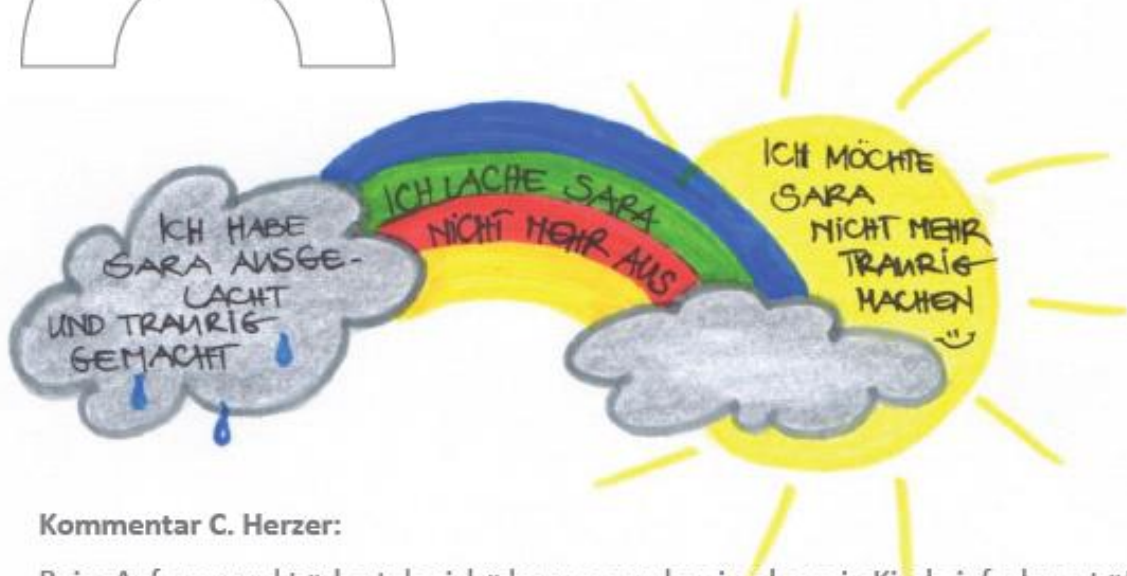 ICH HABE
SARA AUSGE-
LACHT
UND TRAURIG
GEMACHT
ICH LACHE SARA
NICHT MEHR AUS
ICH MÖCHTE
SARA
NICHT MEHR
TRAURIG
MACHEN
Kommentar C. Herzer: